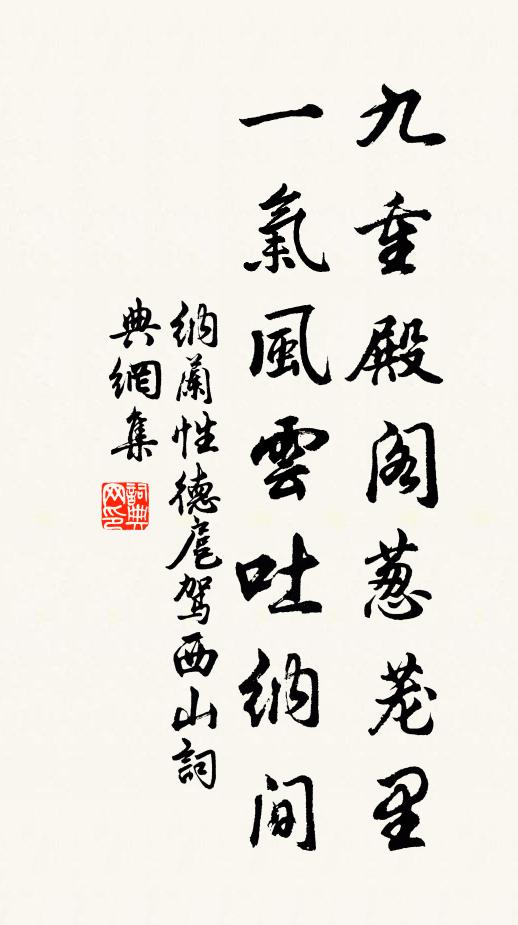 九重殿阁葱茏里
一氣風雲吐纳間
纳蘭性德扈驾西山詞
典網集
詞典网印